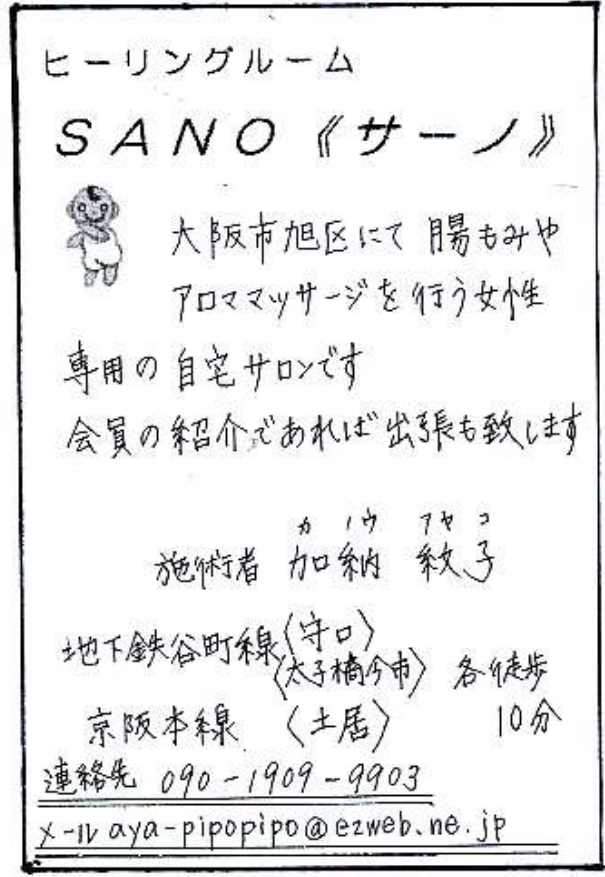 ヒーリングルーム
SANO《サーノ》
大阪市旭区にて 腸もみや
アロママッサージを行う女性
専用の自宅サロンです
会員の紹介であれば出張も致します
カノウ アヤコ
施術者 加納 紋子
地下鉄谷町線〈守口〉
〈太子橋今市〉 各徒歩
京阪本線 〈土居〉 10分
連絡先 090-1909-9903
メール aya-pipopipo@ezweb.ne.jp